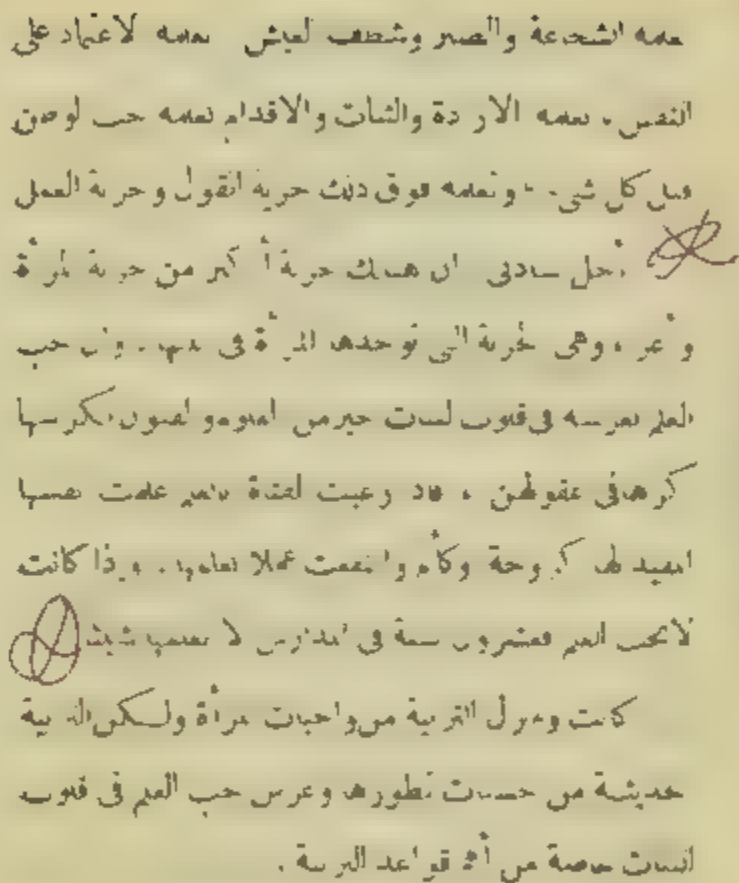 نعلمه الشجاعة والصبر وشظف العيش نعلمه الاعتماد على
النفس، نعلمه الارادة والثبات والاقدام نعلمه حب الوطن
قبل كل شيء، ونعلمه فوق ذلك حرية القول وحرية العمل
أجل سادتي ان هنالك حرية أكبر من حرية المرأة
وأعز، وهي الحرية التي توجدها المرأة في ابنها. وان حب
العلم نغرسه في قلوب البنات خير من العلوم والفنون نكرسها
كرها في عقولهن، فاذا رغبت الفتاة بالعلم علمت نفسها
المفيد لها كزوجة وكأم وانتفعت عملا بعلمها. واذا كانت
لا تحب العلم فعشرون سنة في المدارس لا تعلمها شيئا
كانت ولم تزل التربية من واجبات المرأة ولكن التربية
الحديثة من حسنات تطورها وغرس حب العلم في قلوب
البنات خاصة من أهم قواعد التربية.